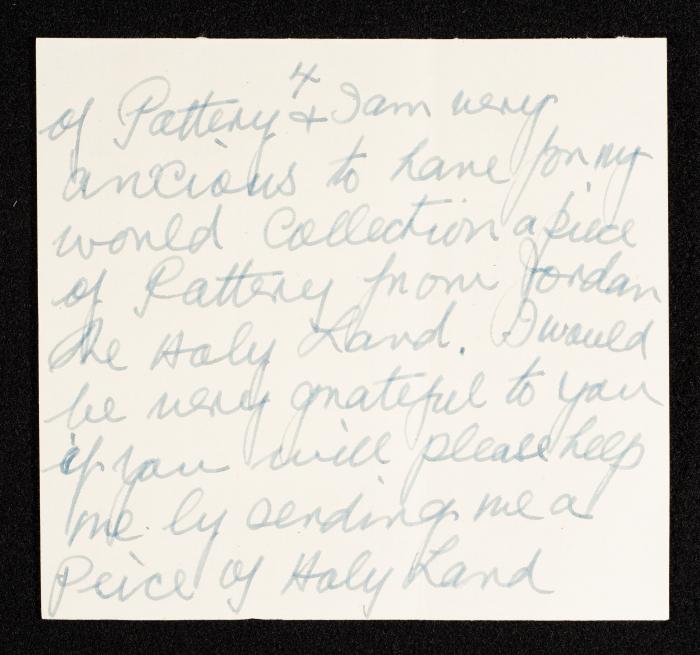 4
of Pattery + I am very
ancious to have for my
world Collection a piece
of Pattery from Jordan
the Holy Land. I would
be very grateful to you
if you will please help
me by sending me a
Peice of Holy Land